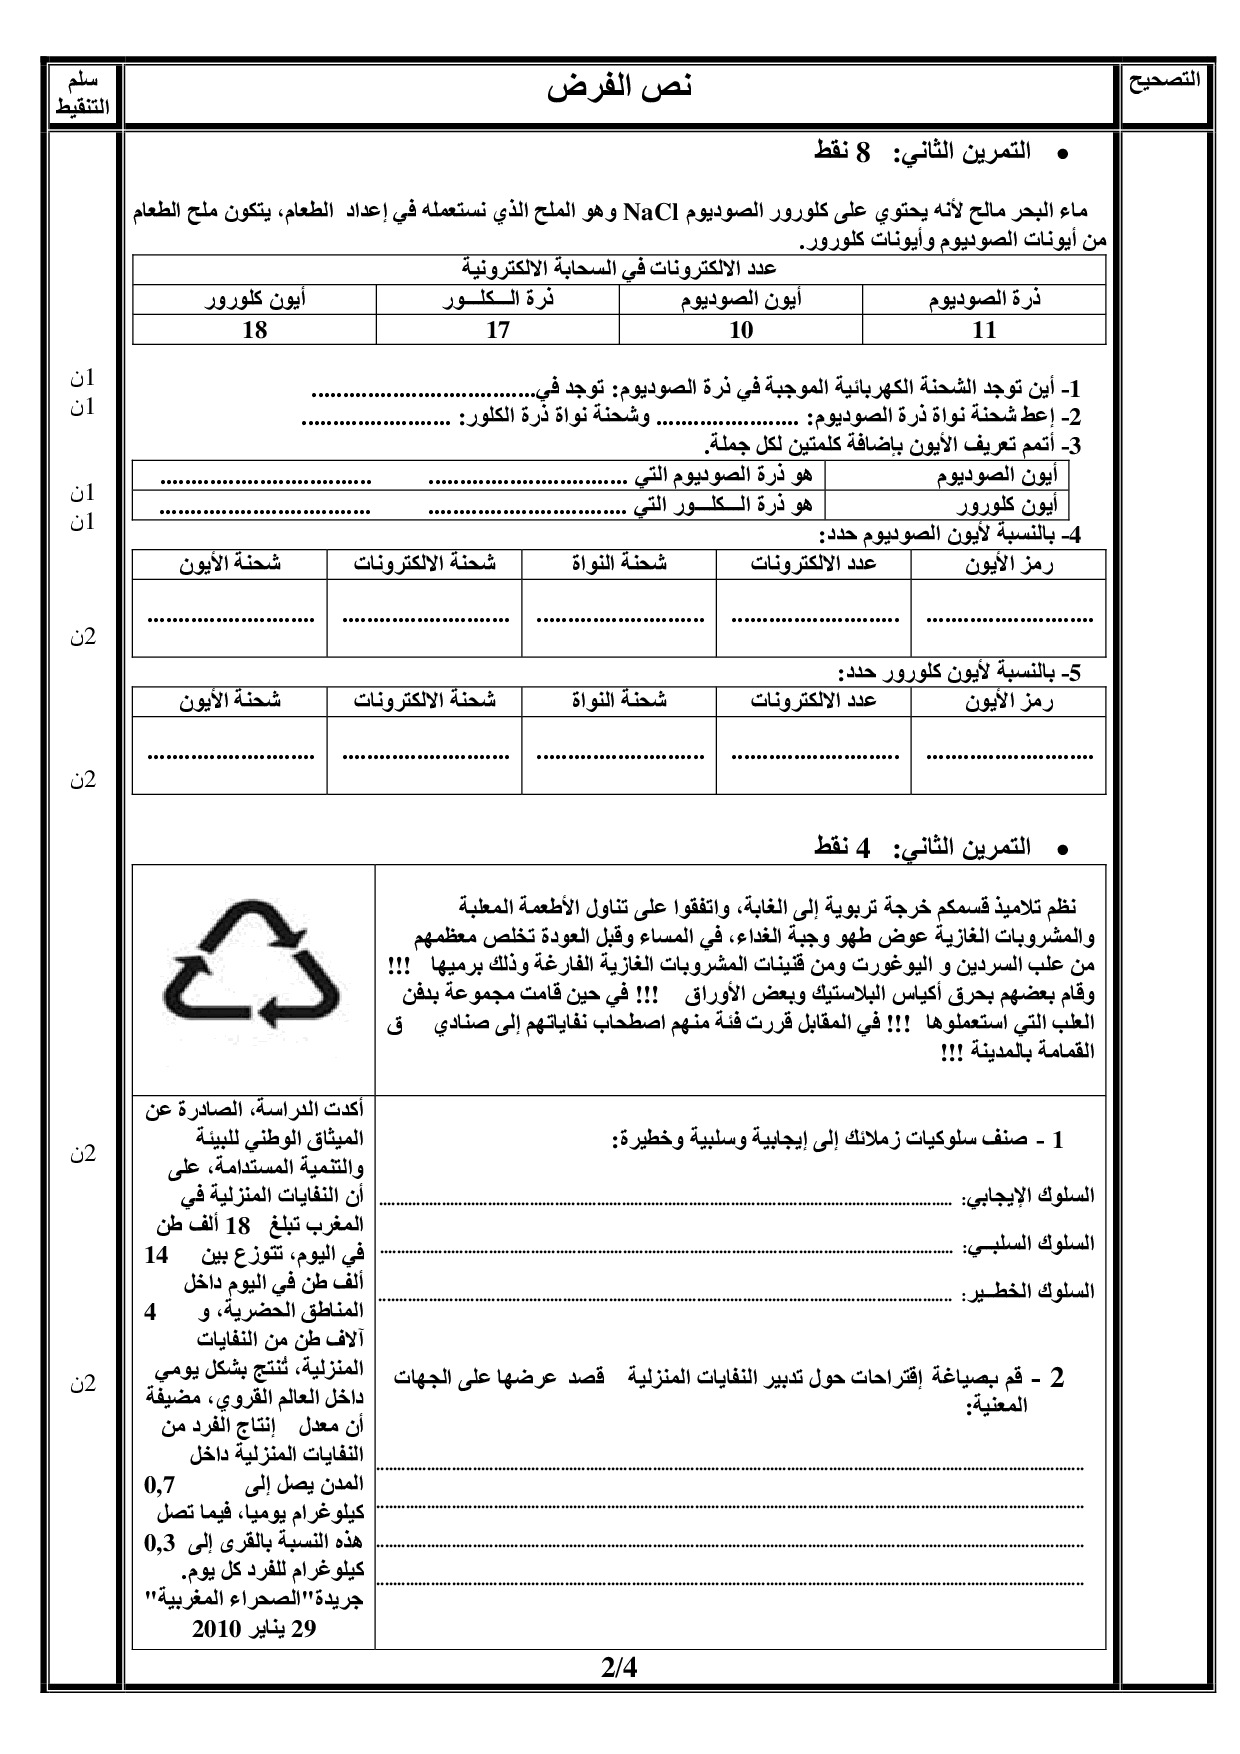 التصحيح
نص الفرض
سلم
التنقيط
• التمرين الثاني: 8 نقط
ماء البحر مالح لأنه يحتوي على كلورور الصوديوم NaCl وهو الملح الذي نستعمله في إعداد الطعام، يتكون ملح الطعام
من أيونات الصوديوم وأيونات كلورور.
عدد الالكترونات في السحابة الالكترونية
ذرة الصوديوم أيون الصوديوم ذرة الــكلــور أيون كلورور
11 10 17 18
1- أين توجد الشحنة الكهربائية الموجبة في ذرة الصوديوم: توجد في....................................
1ن
2- إعط شحنة نواة ذرة الصوديوم: ....................... وشحنة نواة ذرة الكلور: ........................
1ن
3- أتمم تعريف الأيون بإضافة كلمتين لكل جملة.
أيون الصوديوم هو ذرة الصوديوم التي ................................ ..................................
1ن
أيون كلورور هو ذرة الــكلــور التي ................................ ..................................
1ن
4- بالنسبة لأيون الصوديوم حدد:
رمز الأيون عدد الالكترونات شحنة النواة شحنة الالكترونات شحنة الأيون
........................... ........................... ........................... ........................... ...........................
2ن
5- بالنسبة لأيون كلورور حدد:
رمز الأيون عدد الالكترونات شحنة النواة شحنة الالكترونات شحنة الأيون
........................... ........................... ........................... ........................... ...........................
2ن
• التمرين الثاني: 4 نقط
نظم تلاميذ قسمكم خرجة تربوية إلى الغابة، واتفقوا على تناول الأطعمة المعلبة
والمشروبات الغازية عوض طهو وجبة الغداء، في المساء وقبل العودة تخلص معظمهم
من علب السردين و اليوغورت ومن قنينات المشروبات الغازية الفارغة وذلك برميها !!!
وقام بعضهم بحرق أكياس البلاستيك وبعض الأوراق !!! في حين قامت مجموعة بدفن
العلب التي استعملوها !!! في المقابل قررت فئة منهم اصطحاب نفاياتهم إلى صنادي ق
القمامة بالمدينة !!!
1 - صنف سلوكيات زملائك إلى إيجابية وسلبية وخطيرة:
2ن
السلوك الإيجابي: ........................................................................
السلوك السلبــي: ........................................................................
السلوك الخطــير: ........................................................................
2 - قم بصياغة إقتراحات حول تدبير النفايات المنزلية قصد عرضها على الجهات
المعنية:
2ن
..........................................................................................
..........................................................................................
..........................................................................................
..........................................................................................
أكدت الدراسة، الصادرة عن
الميثاق الوطني للبيئة
والتنمية المستدامة، على
أن النفايات المنزلية في
المغرب تبلغ 18 ألف طن
في اليوم، تتوزع بين 14
ألف طن في اليوم داخل
المناطق الحضرية، و 4
آلاف طن من النفايات
المنزلية، تُنتج بشكل يومي
داخل العالم القروي، مضيفة
أن معدل إنتاج الفرد من
النفايات المنزلية داخل
المدن يصل إلى 0,7
كيلوغرام يوميا، فيما تصل
هذه النسبة بالقرى إلى 0,3
كيلوغرام للفرد كل يوم.
جريدة"الصحراء المغربية"
29 يناير 2010
2/4